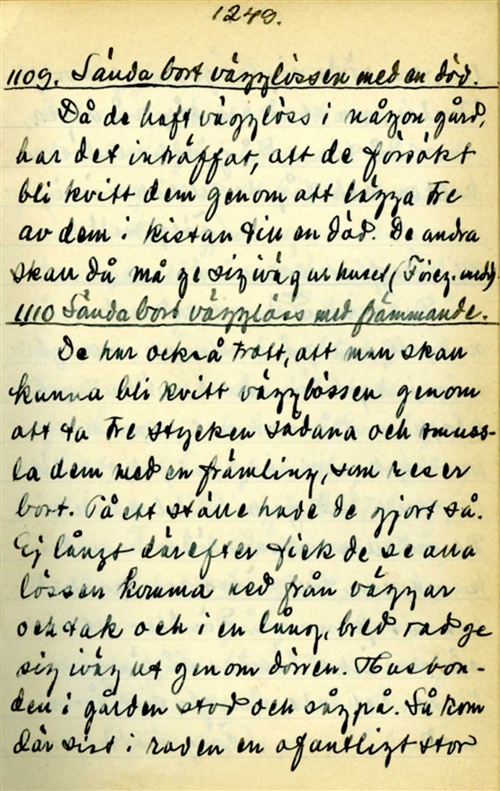 1249.
1109. Sända bort vägglössen med en död.
Då de haft vägglöss i någon gård,
har det inträffat, att de försökt
bli kvitt dem genom att lägga tre
av dem i kistan till en död. De andra
skall då må ge sig iväg ur huset, (Föreg. medd.)
1110 Sända bort vägglöss med främmande.
De har också trott, att man skall
kunna bli kvitt vägglössen genom
att ta tre stycken sådana och smuss-
la dem med en främling, som reser
bort. På ett ställe hade de gjort så.
Ej långt därefter fick de se alla
lössen komma ned från väggar
och tak och i en lång, bred rad ge
sig iväg ut genom dörren. Husbon-
den i gården stod och såg på. Så kom
där sist i raden en ofantligt stor